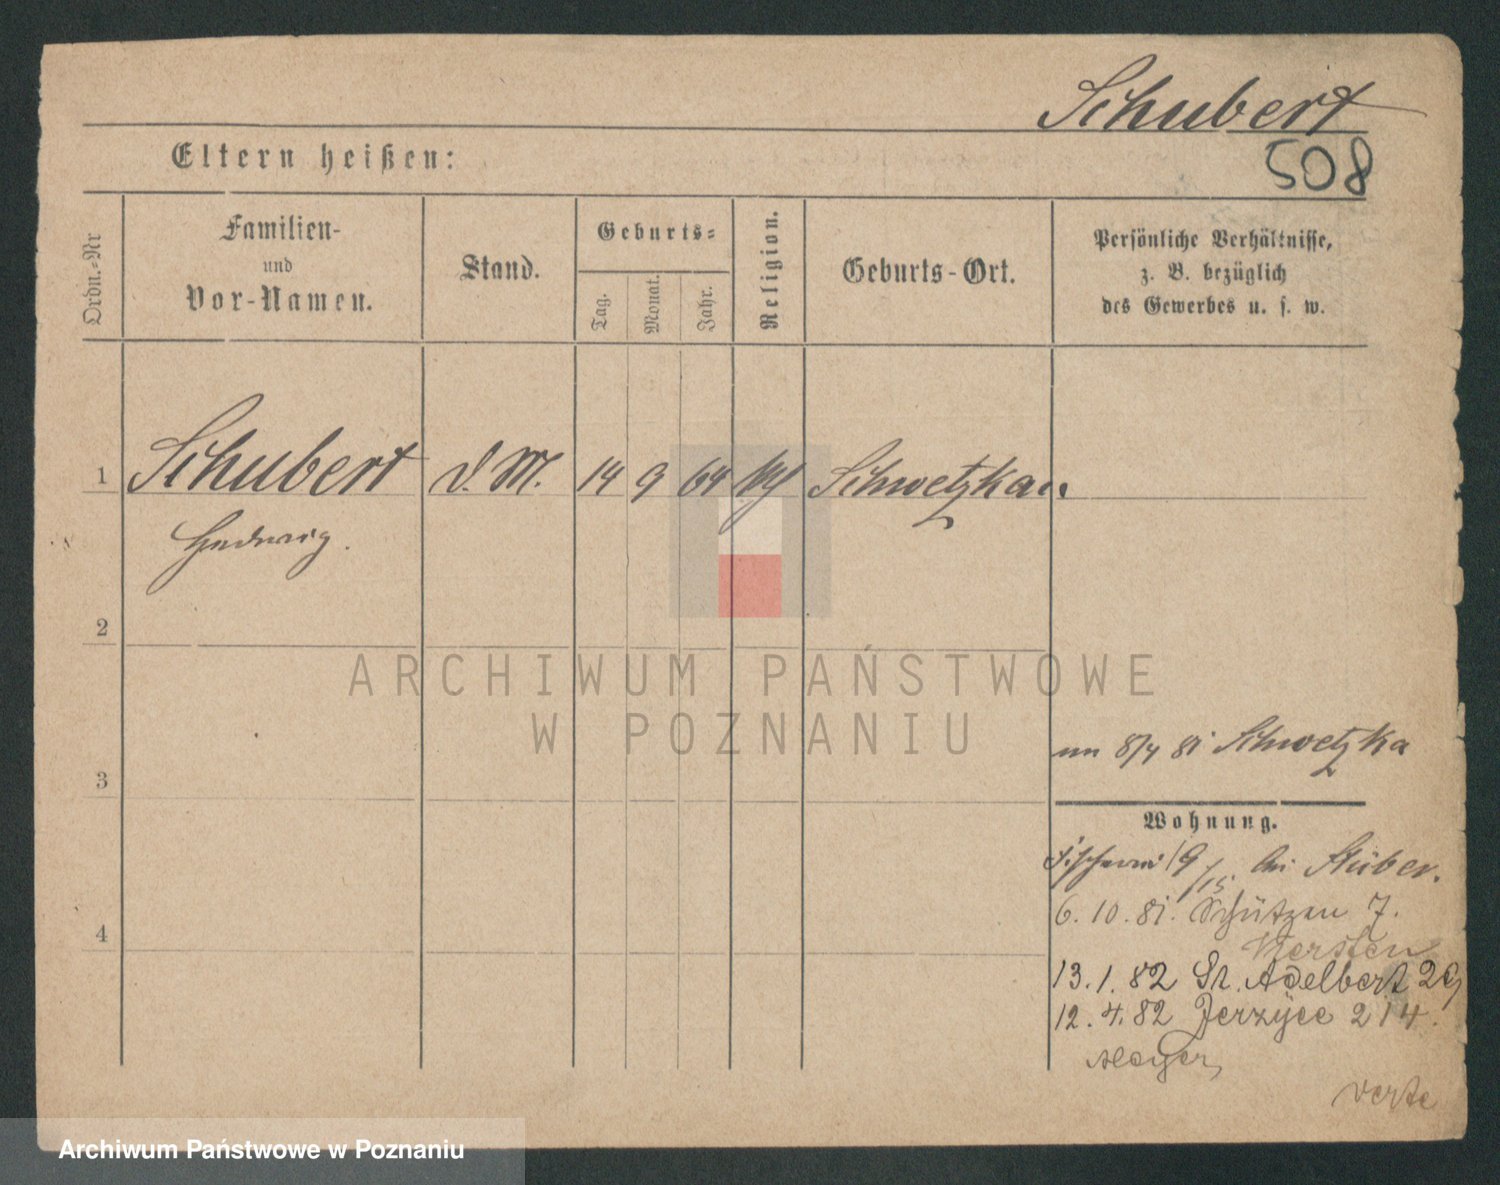 Schubert
508
Eltern heißen:
Ordn.=Nr
Familien-
und
Vor-Namen.
Stand.
Geburts=
Tag.
Monat.
Jahr.
Religion.
Geburts-Ort.
Persönliche Verhältnisse,
z. B. bezüglich
des Gewerbes u. s. w.
1 Schubert d. M. 14 9 64 Schwetzkau.
Hedwig.
2
ARCHIWUM PAŃSTWOWE
W POZNANIU
3
81 Schwetzka
Wohnung.
19/15 bei Stüber.
6. 10. 81. Schützen 7.
Kersten
4
13. 1. 82 St. Adelbert 29
12. 4. 82 Jerzyce 214.
Meyer
verte
Archiwum Państwowe w Poznaniu